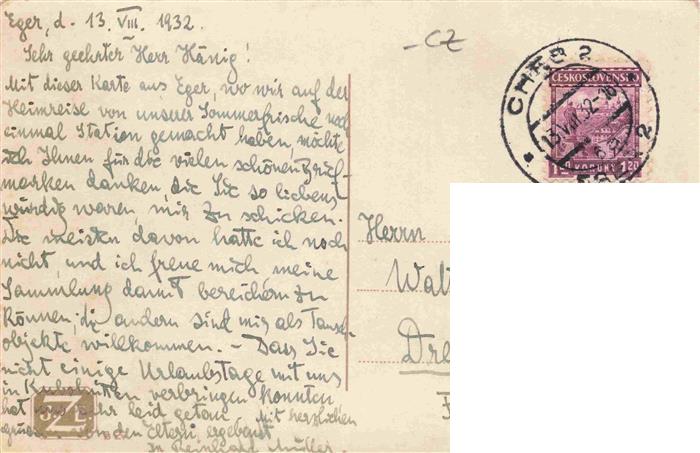 Eger, d. 13. VIII. 1932.
Sehr geehrter Herr Hänig!
Mit dieser Karte aus Eger, wo wir auf der
Heimreise von unserer Sommerfrische noch
einmal Station gemacht haben, möchte
ich Ihnen für die vielen schönen Brief-
marken danken, die Sie so liebens-
würdig waren, mir zu schicken.
Die meisten davon hatte ich noch
nicht, und ich freue mich meine
Sammlung damit bereichern zu
können; die andern sind mir als Tausch-
objekte willkommen. – Dass Sie
nicht einige Urlaubstage mit uns
in verbringen konnten
hat uns sehr leid getan. Mit herzlichen
von den Eltern, ergebenst
Ihr Reinhard Müller.
– CZ
CHEB 2
ČESKOSLOVENSKO
13.VIII.32-18
1.20 KORUNY 1.20
Herrn
Walt
Dre
JZL